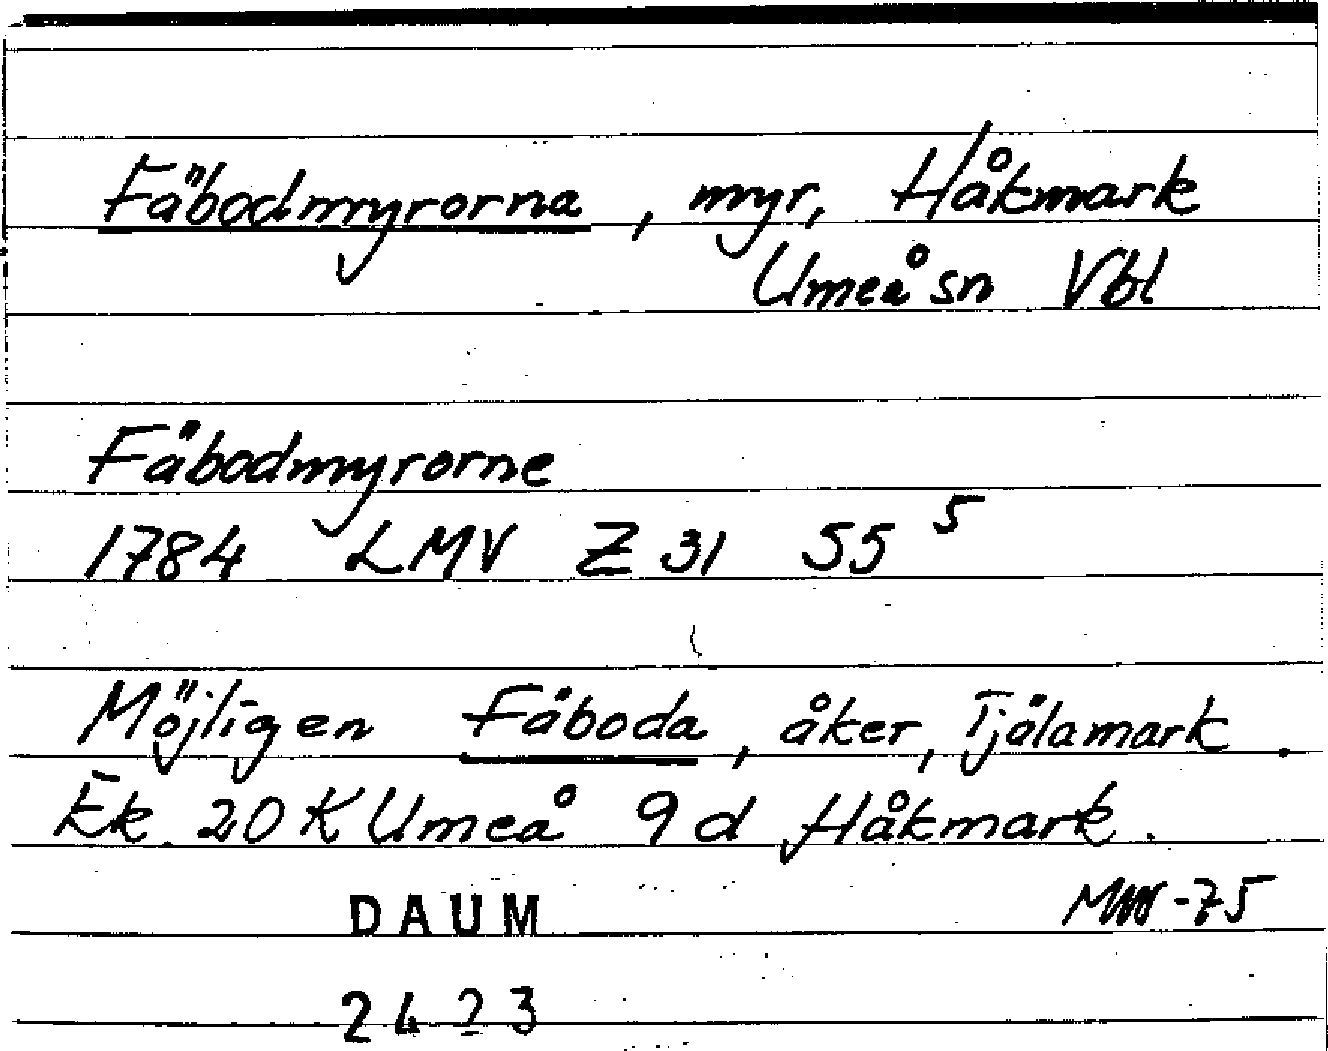 Fäbodmyrorna, myr, Håkmark
Umeå sn Vbl
Fäbodmyrorne
1784 LMV Z 31 55⁵
Möjligen Fäboda, åker, Tjälamark.
Ek. 20 K Umeå 9 d Håkmark.
-75
DAUM
2423